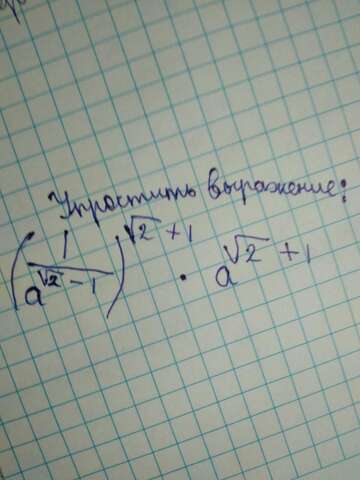 Упростить выражение:
(1/a^{√2 - 1})^{√2 + 1} · a^{√2 + 1}